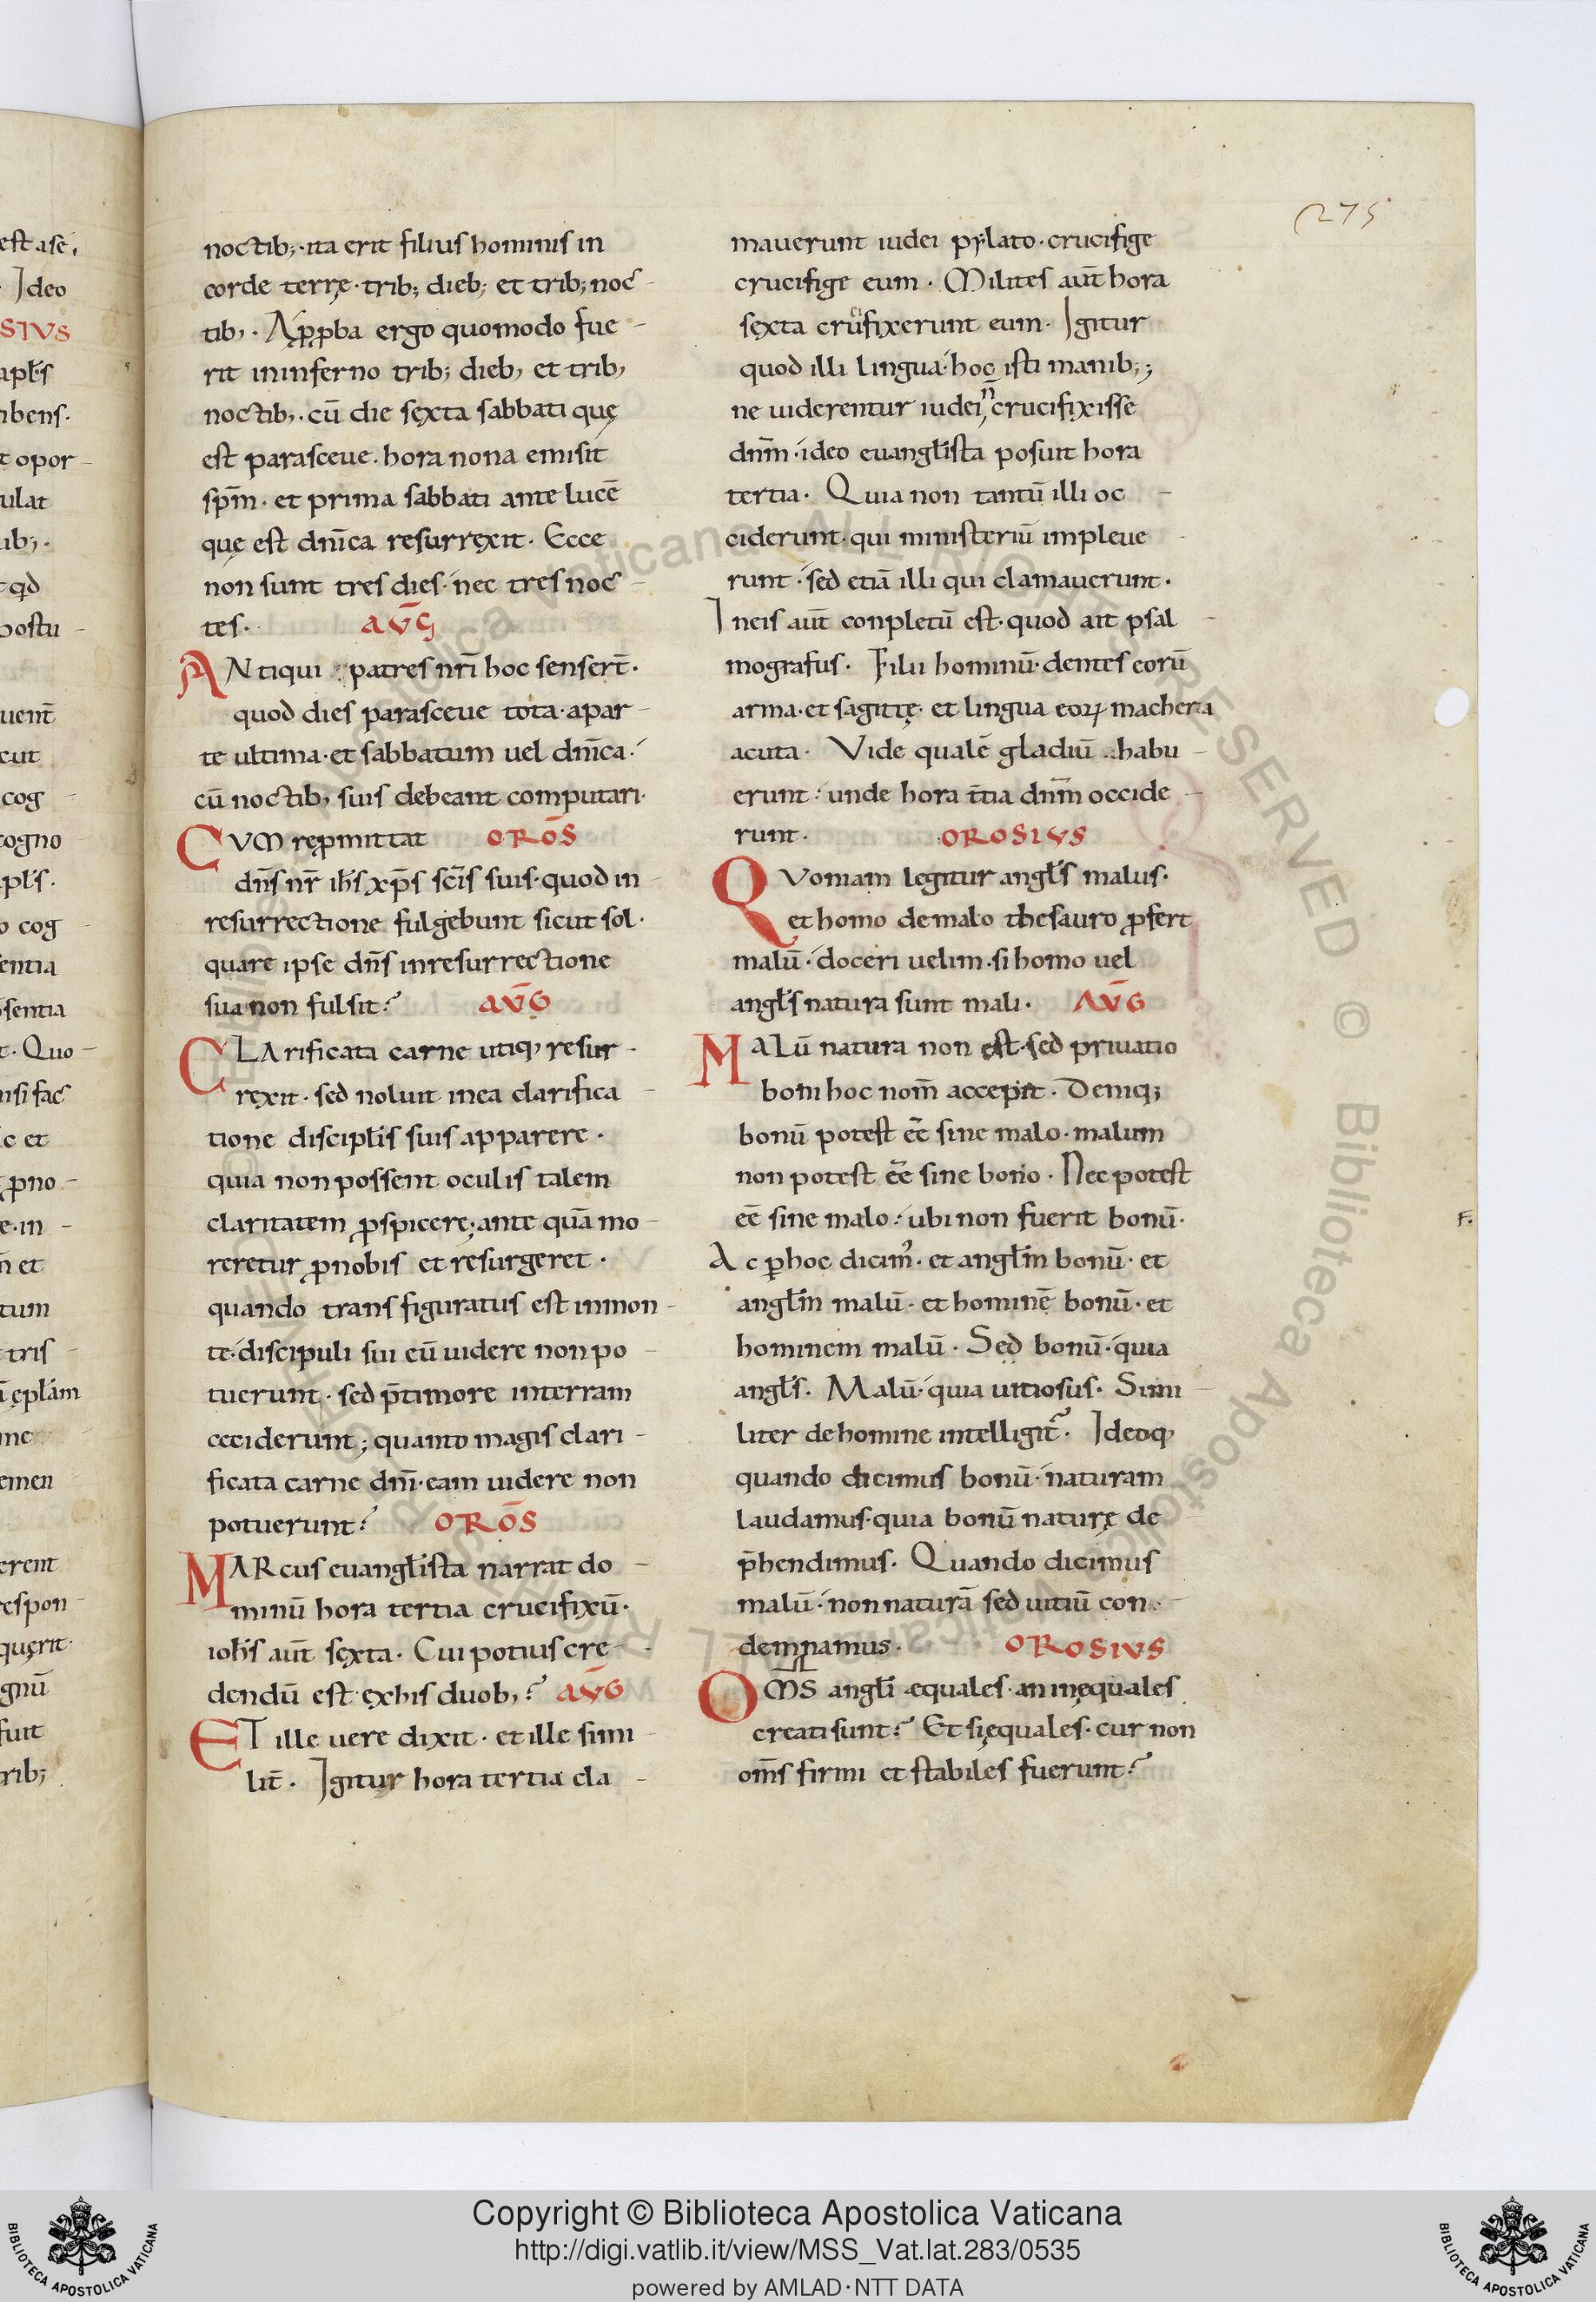 275
noctib;· ita erit filius hominis in
corde terrę· trib; dieb; et trib; noc-
tib;· Apꝓba ergo quomodo fue-
rit ininferno trib; dieb; et trib;
noctib;· cū die sexta sabbati quę
est parasceue· hora nona emisit
spm̄· et prima sabbati ante lucē
quę est dn̄ica resurrexit· Ecce
non sunt tres dies· nec tres noc-
tes· AVḠ
ANtiqui patres nr̄i hoc senser̄t·
quod dies parasceue tota· apar-
te ultima· et sabbatum uel dn̄ica·
cū noctib; suis debeant computari·
CVM reꝓmittat OROS̄
dn̄s nr̄ ih̄s xp̄s sc̄is suis· quod in-
resurrectione fulgebunt sicut sol·
quare ipse dn̄s inresurrectione
sua non fulsit? AVḠ
CLArificata carne utiq; resur-
rexit· sed noluit inea clarifica-
tione discipl̄is suis apparere·
quia non possent oculis talem
claritatem ꝓspicere; ante quā mo-
reretur ꝓnobis et resurgeret·
quando transfiguratus est inmon-
te· discipuli sui eū uidere non po-
tuerunt· sed p̄timore interram
ceciderunt; quanto magis clari-
ficata carne dn̄i· eam uidere non
potuerunt? OROS̄
MARcus euangl̄ista narrat do-
minū hora tertia crucifixū·
ioh̄s aut̄ sexta· Cui potius cre-
dendū est exhis duob;? AVḠ
ET ille uere dixit· et ille simi-
lit̄· Igitur hora tertia cla-
mauerunt iudei pylato· crucifige
crucifige eum· Milites aut̄ hora
sexta crucifixerunt eum· Igitur
quod illi lingua· hoc isti manib;;
ne uiderentur iudei n̄ crucifixisse
dnm̄· ideo euangl̄ista posuit hora
tertia· Quia non tantū illi oc-
ciderunt· qui ministeriū impleue-
runt· sed etiā illi qui clamauerunt·
Ineis aut̄ conpletū est· quod ait psal-
mografus· Filii hominū· dentes eorū
arma· et sagittę· et lingua eoꝝ machera
acuta· Vide qualē gladiū habu-
erunt· unde hora t̄tia dnm̄ occide-
runt· OROSIVS
QVoniam legitur angl̄s malus·
et homo de malo thesauro ꝓfert
malū· doceri uelim· si homo uel
angl̄s natura sunt mali· AVḠ
MALū natura non est· sed priuatio
boni hoc nom̄ accepit· Deniq;
bonū potest eē sine malo· malum
non potest eē sine bono· Nec potest
eē sine malo· ubi non fuerit bonū·
Ac ꝑhoc dicim᷒· et angl̄m bonū· et
angl̄m malū· et hominē bonū· et
hominem malū· Sed bonū· quia
angl̄s· Malū· quia uitiosus· Simi-
liter de homine intelligit᷑· Ideoq;
quando dicimus bonū· naturam
laudamus· quia bonū naturę de-
p̄hendimus· Quando dicimus
malū· non naturā sed uitiū con-
demnamus· OROSIVS
OM̄S angl̄i equales· an inęquales
creati sunt? Et si ęquales· cur non
om̄s firmi et stabiles fuerunt?
F.
Copyright © Biblioteca Apostolica Vaticana
http://digi.vatlib.it/view/MSS_Vat.lat.283/0535
powered by AMLAD·NTT DATA
BIBLIOTECA APOSTOLICA VATICANA
BIBLIOTECA APOSTOLICA VATICANA